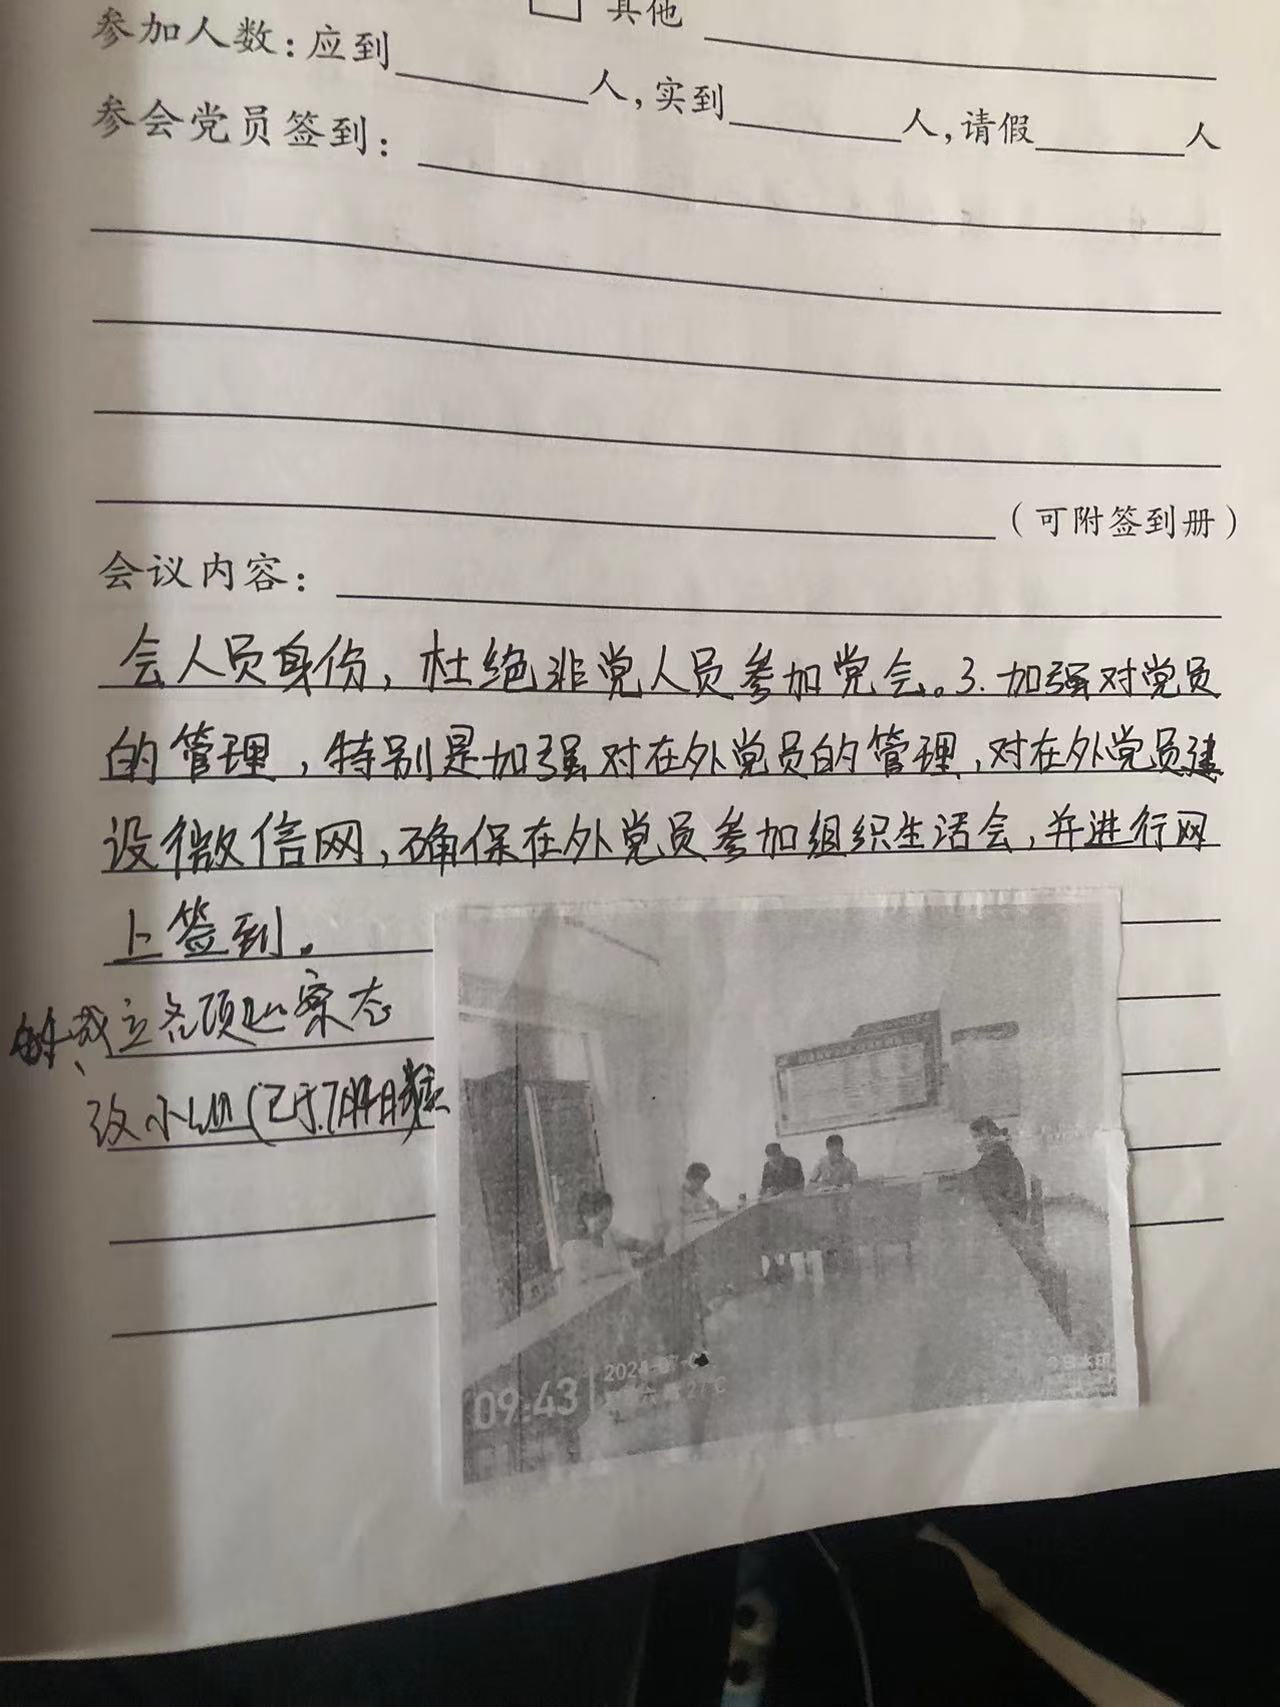 其他
参加人数：应到 人，实到 人，请假 人
参会党员签到：
（可附签到册）
会议内容：
会人员身份，杜绝非党人员参加党会。3.加强对党员
的管理，特别是加强对在外党员的管理，对在外党员建
设微信网，确保在外党员参加组织生活会，并进行网
上签到。
成立各项巡察
改小组(已于7月
09:43
27°C